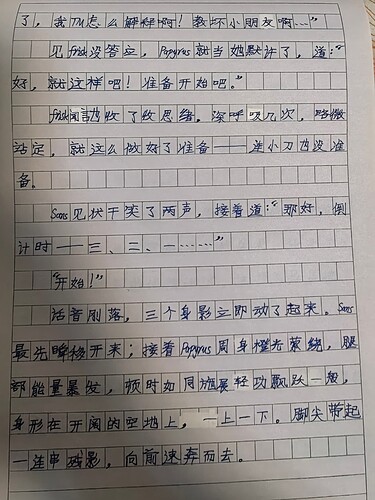 了，我TM怎么解释啊！教坏小朋友啊…”
见frisk没答应，Papyrus就当她默许了，道：“
好，就这样吧！准备开始吧。”
frisk闻言也收了收思绪。深呼吸几次，略微
站定，就这么做好了准备——连小刀也没准
备。
Sans见状干笑了两声，接着道：“那好，倒
计时——三、二、一……”
“开始！”
话音刚落，三个身影立即动了起来。Sans
最先瞬移开来；接着Papyrus周身橙光萦绕，腿
部能量暴发，顿时如同施展轻功飘跃一般，
身形在开阔的空地上，一上一下。脚尖带起
一连串残影，向前速奔而去。